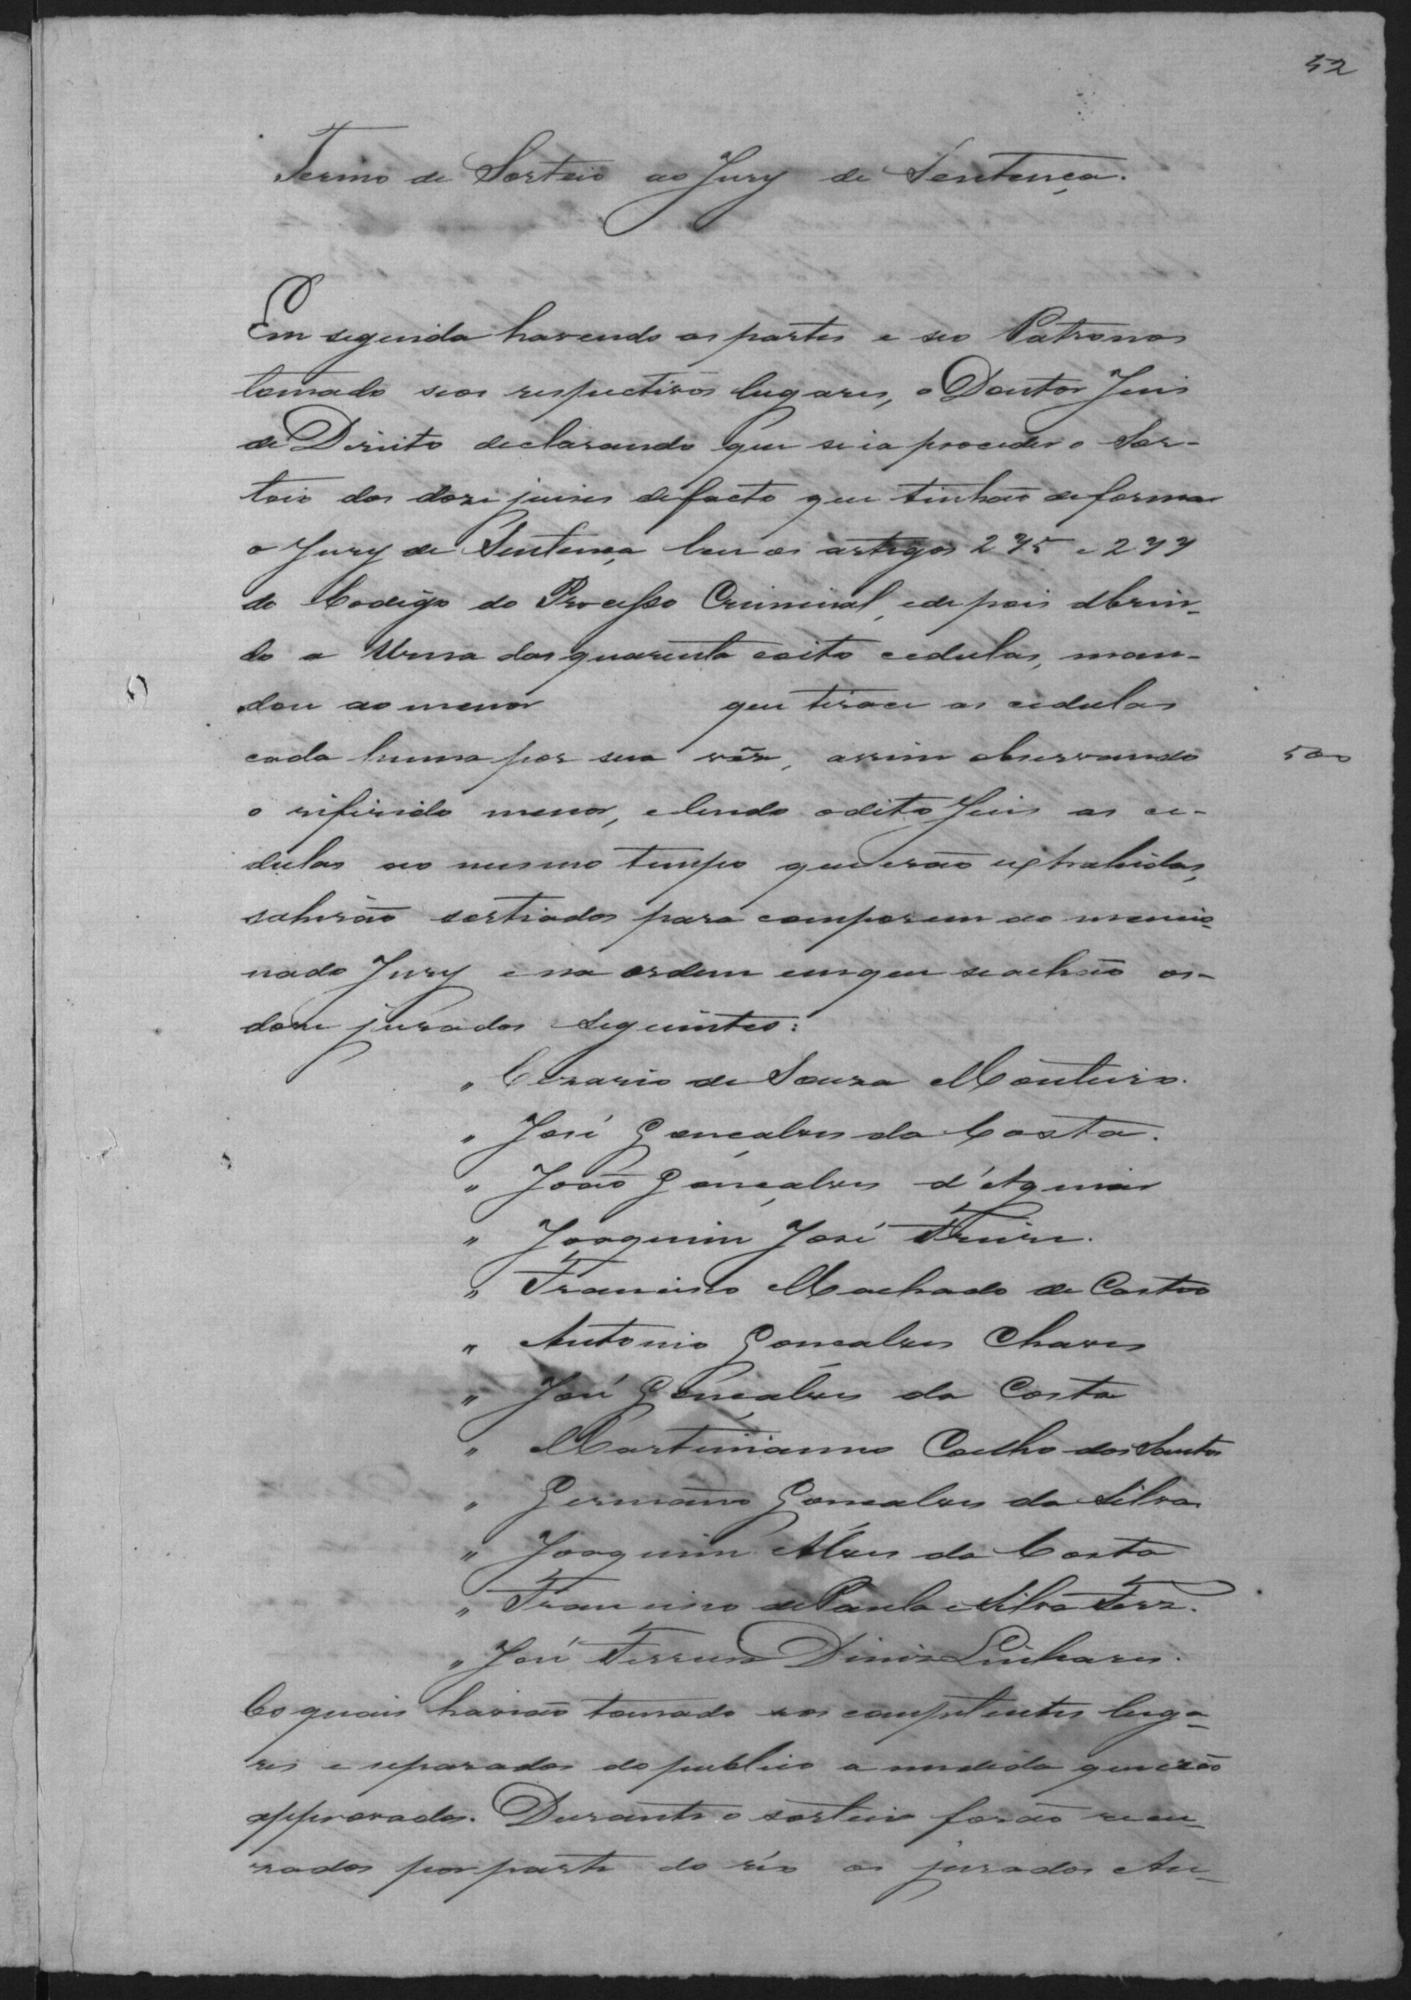 52
Termo de Sorteio ao Jury de Sentença.
Em seguida havendo as partes e seo Patronos
tomado seos respectivos lugares, o Doutor Juis
de Direito declarando que se ia proceder o Sor-
teio dos doze juises de facto que tinhão de formar
o Jury de Sentença leu os artigos 275 e 277
do Codigo do Processo Criminal, e depois abrin-
do a Urna das quarenta e oito cedulas, man-
dou ao menor que tirace as cedulas
cada huma por sua vêz, assim observando
500
o referido menor, e lendo o dito Juis as ce-
dulas ao mesmo tempo que erão extrahidas,
sahirão sortiados para comporem ao mencio-
nado Jury e na ordem em que se achão os-
doze jurados seguintes:
" Cezario de Souza Monteiro.
" José Gonçalves da Costa.
" João Gonçalves d'Aguiar
" Joaquim José Freire.
" Francisco Machado de Castro
" Antonio Goncalves Chaves
" José Gonçalves da Costa
" Martinianno Coelho dos Santos
" Germano Goncalves da Silva
" Joaquim Alves da Costa
" Francisco de Paula e Silva Terz.
" José Ferreira Diniz Linhares.
Os quais havião tomado seos competentes luga-
res e separados do publico a medida que erão
approvados. Durante o sorteio forão recu-
zados por parte do réo os jurados An-